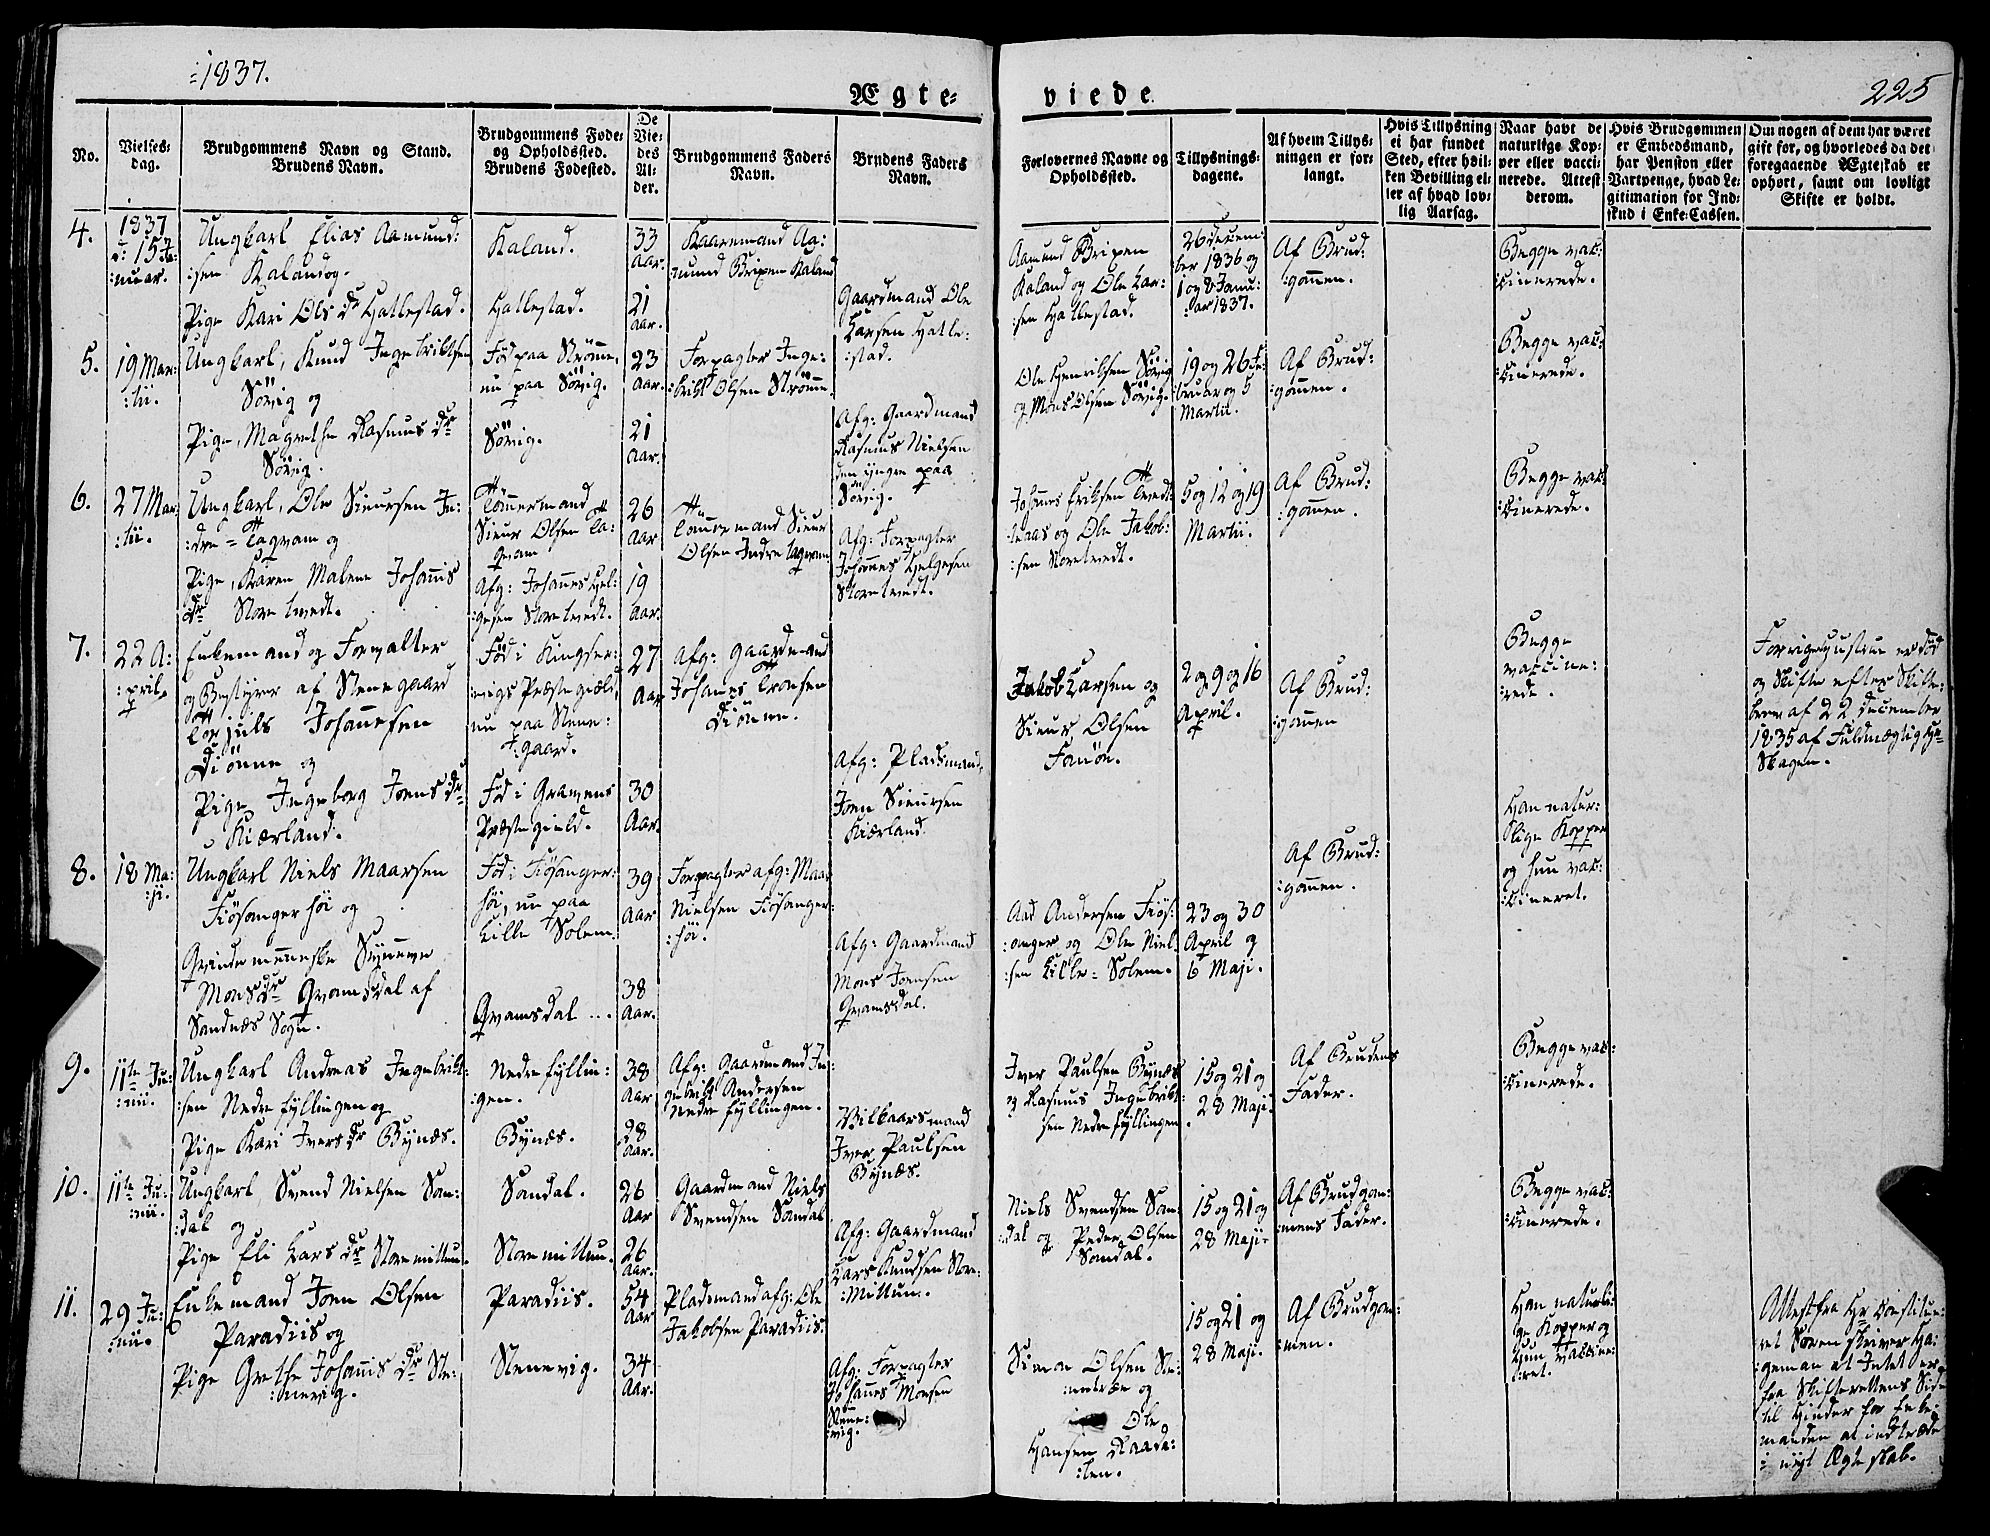 :1837.
Ægte=
viede.
225
No.
Vielses=
dag.
Brudgommens Navn og Stand.
Brudens Navn.
Brudgommens Føde=
og Opholdssted.
Brudens Fødested.
De
Vie=
des
Al=
der.
Brudgommens Faders
Navn.
Brudens Faders
Navn.
Forlovernes Navne og
Opholdssted.
Tillysnings=
dagene.
Af hvem Tillys=
ningen er for=
langt.
Hvis Tillysning
ei har fundet
Sted, efter hvil=
ken Bevilling el=
ler af hvad lov=
lig Aarsag.
Naar havt de
naturlige Kop=
per eller vacci=
nerede. Attest
derom.
Hvis Brudgommen
er Embedsmand,
har Pension eller
Vartpenge, hvad Le=
gitimation for Ind=
skud i Enke=Cassen.
Om nogen af dem har været
gift før, og hvorledes da det
foregaaende Ægteskab er
ophørt, samt om lovligt
Skifte er holdt.
4.
1837
d: 15 Ja:
:nuar.
Ungkarl Elias Aamund:
:sen Kaland og.
Pige Kari Ols dr Hatlestad.
Kaland.
Hatlestad.
33
Aar.
21
Aar.
Kaaremand Aa:
:mund Brixen Kaland
Gaardmand Ole
Larsen Hatle:
:stad.
Aamund Brixen
Kaland og Ole Lar:
:sen Hatlestad.
26 Decem:
ber 1836 og
1 og 8 Janu:
:ar 1837.
Af Brud:
:gommen.
Begge vac:
:cinerede.
5.
19 Mar:
:tii.
Ungkarl, Knud Ingebriktsen
Sörig og
Pige, Magrethe Rasmus dr
Sörig.
Föd paa Strömme,
nu paa Sörig.
Sörig.
23
Aar.
21
Aar.
Forpagter Inge:
:brikt Olsen Strömme.
Afg: Gaardmand
Rasmus Nielsen
den yngre paa
Sörig.
Ole Henriksen Sörig
og Mons Olsen Sörig.
19 og 26 Fe:
:bruar og 5
Martii.
Af Brud:
:gommen.
Begge vac:
:cinerede.
6.
27 Mar:
:tii.
Ungkarl, Ole Siversen In:
:dre = Taqvam og
Pige, Karen Malene Johannis
dr Storetvedt.
Tömmermand
Siver Olsen Ta:
qvam
Afg: Johannes Hel:
:gesen Storetvedt.
26
Aar
19
Aar.
Tömmermand Siver
Olsen Indre Taqvam
Afg: Forpagter
Johannes Helgesen
Storetvedt.
Johannes Eriksen Tvedt:
:teraas og Ole Jakob:
:sen Storetvedt.
5 og 12 og 19
Martii.
Af Brud:
:gommen.
Begge vac:
:cinerede.
7.
22 A:
:pril.
Enkemand og Forvalter
og Bestyrer af Stenegaard
Torjuls Johannesen
Diönne og
Pige Ingeborg Joens dr
Kiærland.
Föd i Kingser:
:vigs Præstegield,
nu paa Stene:
:gaard.
Föd i Gravens
Præstegield.
27
Aar
30
Aar.
Afg: Gaardmand
Johannes Tronsen
Diönne.
Afg: Pladsmand,
Joen Siversen
Kiærland.
Jakob Larsen og
Siver Olsen
Fanön.
2 og 9 og 16
April.
Af Brud:
:gommen
Begge
vaccine:
:rede.
Forrige Hustrue er död
og Skifte efter Skifte:
brev af 22 December
1835 af Fuldmægtig
Skagen.
8.
18 Ma:
:ji.
Ungkarl Niels Maarsen
Fiösangerhöi og
Qvindemenneske Synneve
Mons dr Qvamsdal af
Sandnæs Sogn.
Föd i Fiösanger:
höi, nu paa
Lille Solem.
Qvamsdal ...
39
Aar
38
Aar.
Forpagter afg: Maar
Nielsen Fiösanger:
:höi.
Afg: Gaardmand
Mons Joensen
Qvamsdal.
Aad Andersen Fiös:
:anger og Ole Niel:
:sen Lille = Solem.
23 og 30
April og
6 Maji.
Af Brud:
:gommen.
Han natur:
lige Kopper
og hun vac:
:cineret.
9.
11te Ju:
:nii.
Ungkarl Andreas Ingebrikt:
:sen Nedre Fyllingen og
Pige Kari Ivers dr Bynæs.
Nedre Fyllin:
:gen.
Bynæs.
38
Aar
28
Aar.
Afg: Gaardmand In:
gebrikt Andersen
Nedre Fyllingen.
Vilkaarsmand
Iver Paulsen
Bynæs.
Iver Paulsen Bynæs
og Rasmus Ingebrikt:
sen Nedre Fyllingen.
15 og 21 og
28 Maji.
Af Brudens
Fader.
Begge vac:
:cinerede.
10.
11te Ju:
:nii.
Ungkarl Svend Nielsen San:
:dal og
Pige Eli Lars dr Storemillum.
Sandal.
Storemillum.
26
Aar
26
Aar.
Gaardmand Niels
Svendsen Sandal
Afg: Gaardmand
Lars Knudsen Store:
:Millum.
Niels Svendsen San:
:dal og Peder Olsen
Sandal.
15 og 21 og
28 Maji.
Af Brudgom:
:mens Fader.
Begge vac:
:cinerede.
11.
29 Ju:
:nii.
Enkemand Joen Olsen
Paradiis og
Pige Grethe Johannis dr Ste:
:nevig.
Paradiis.
Stenevig.
54
Aar
34
Aar.
Pladsmand afg: Ole
Jakobsen Paradiis.
Afg: Forpagter
Johannes Monsen
Stene:
:vig.
Simon Olsen
og
Ole
Hansen Raade:
:len.
15 og 21 og
28 Maji.
Af Brudgom:
:men.
Han naturli:
ge Kopper og
Hun vaccine:
:ret.
Attest fra Hr. Constitue:
ret Sorenskriver Ha:
geman at Intet er
fra Skifterettens Side
til Hinder for Enke:
manden at indtræde
i nyt Ægteskab.